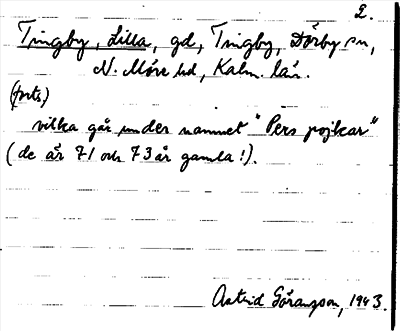 2.
Tingby, Lilla, gd, Tingby, Dörby sn,
N. Möre hd, Kalm. län.
(forts)
vilka går under namnet "Pers pojkar"
(de är 71 och 73 år gamla!).
Astrid Göransson, 1943.